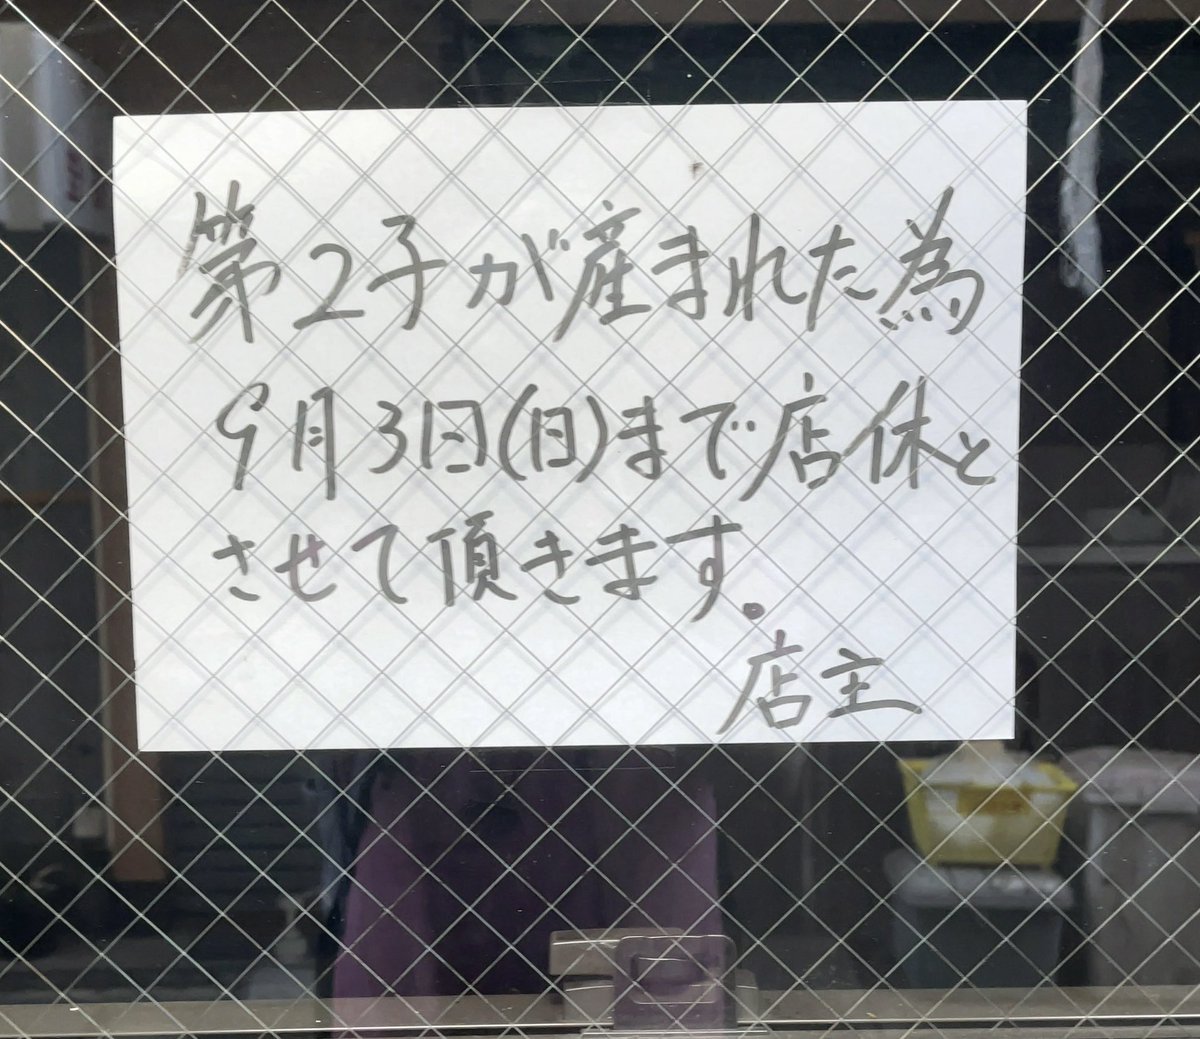 第2子が産まれた為
9月3日(日)まで店休と
させて頂きます。
店主